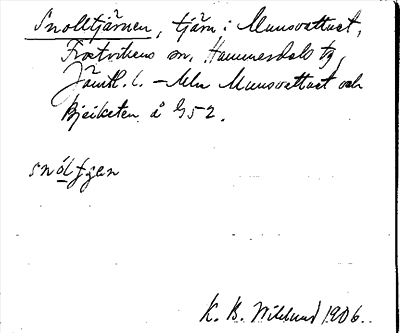 Snolltjärnen, tjärn i Munsvattnet,
Frostvikens sn, Hammerdals tg,
Jämtl. l. – Mln Munsvattnet och
Bjeiketen å G52.
snòltjęn
K. B. Wiklund 1906.